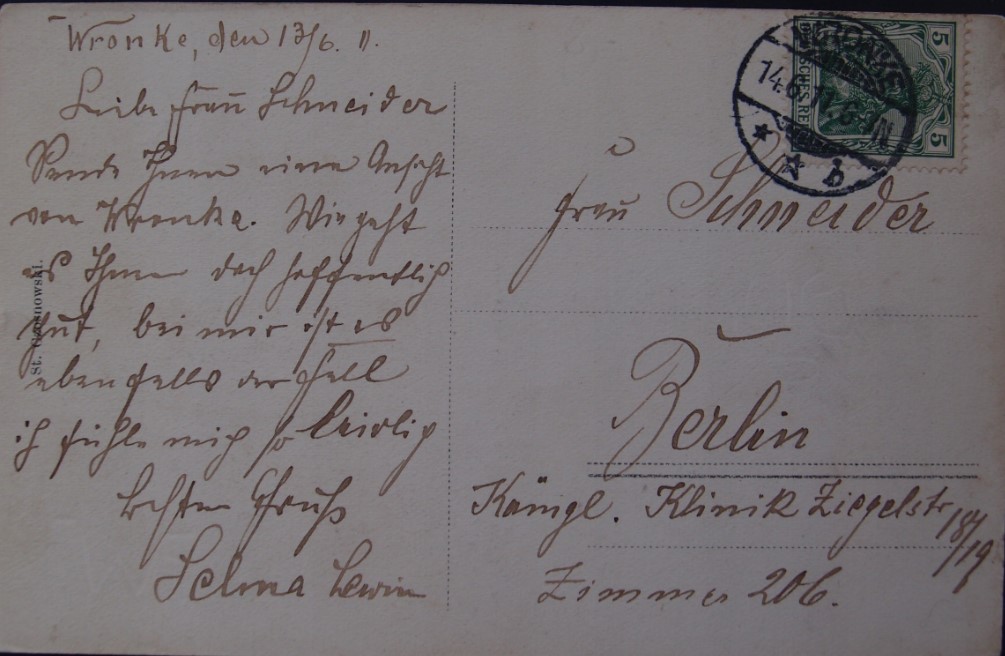 Wronke, den 13/6. 11.
Liebe Frau Schneider
Sende Ihnen eine Ansicht
von Wronke. Wie geht
es Ihnen doch hoffentlich
gut, bei mir ist es
ebenfalls der Fall
ich fühle mich so leidlig
besten Gruß
Selma Lewin
St.
5 DEUTSCHES REICH 5
WRONKE
14.6.11. 6-7 N
* * b
Frau Schneider
Berlin
Köngl. Klinik Ziegelstr 18/19
Zimmer 206.